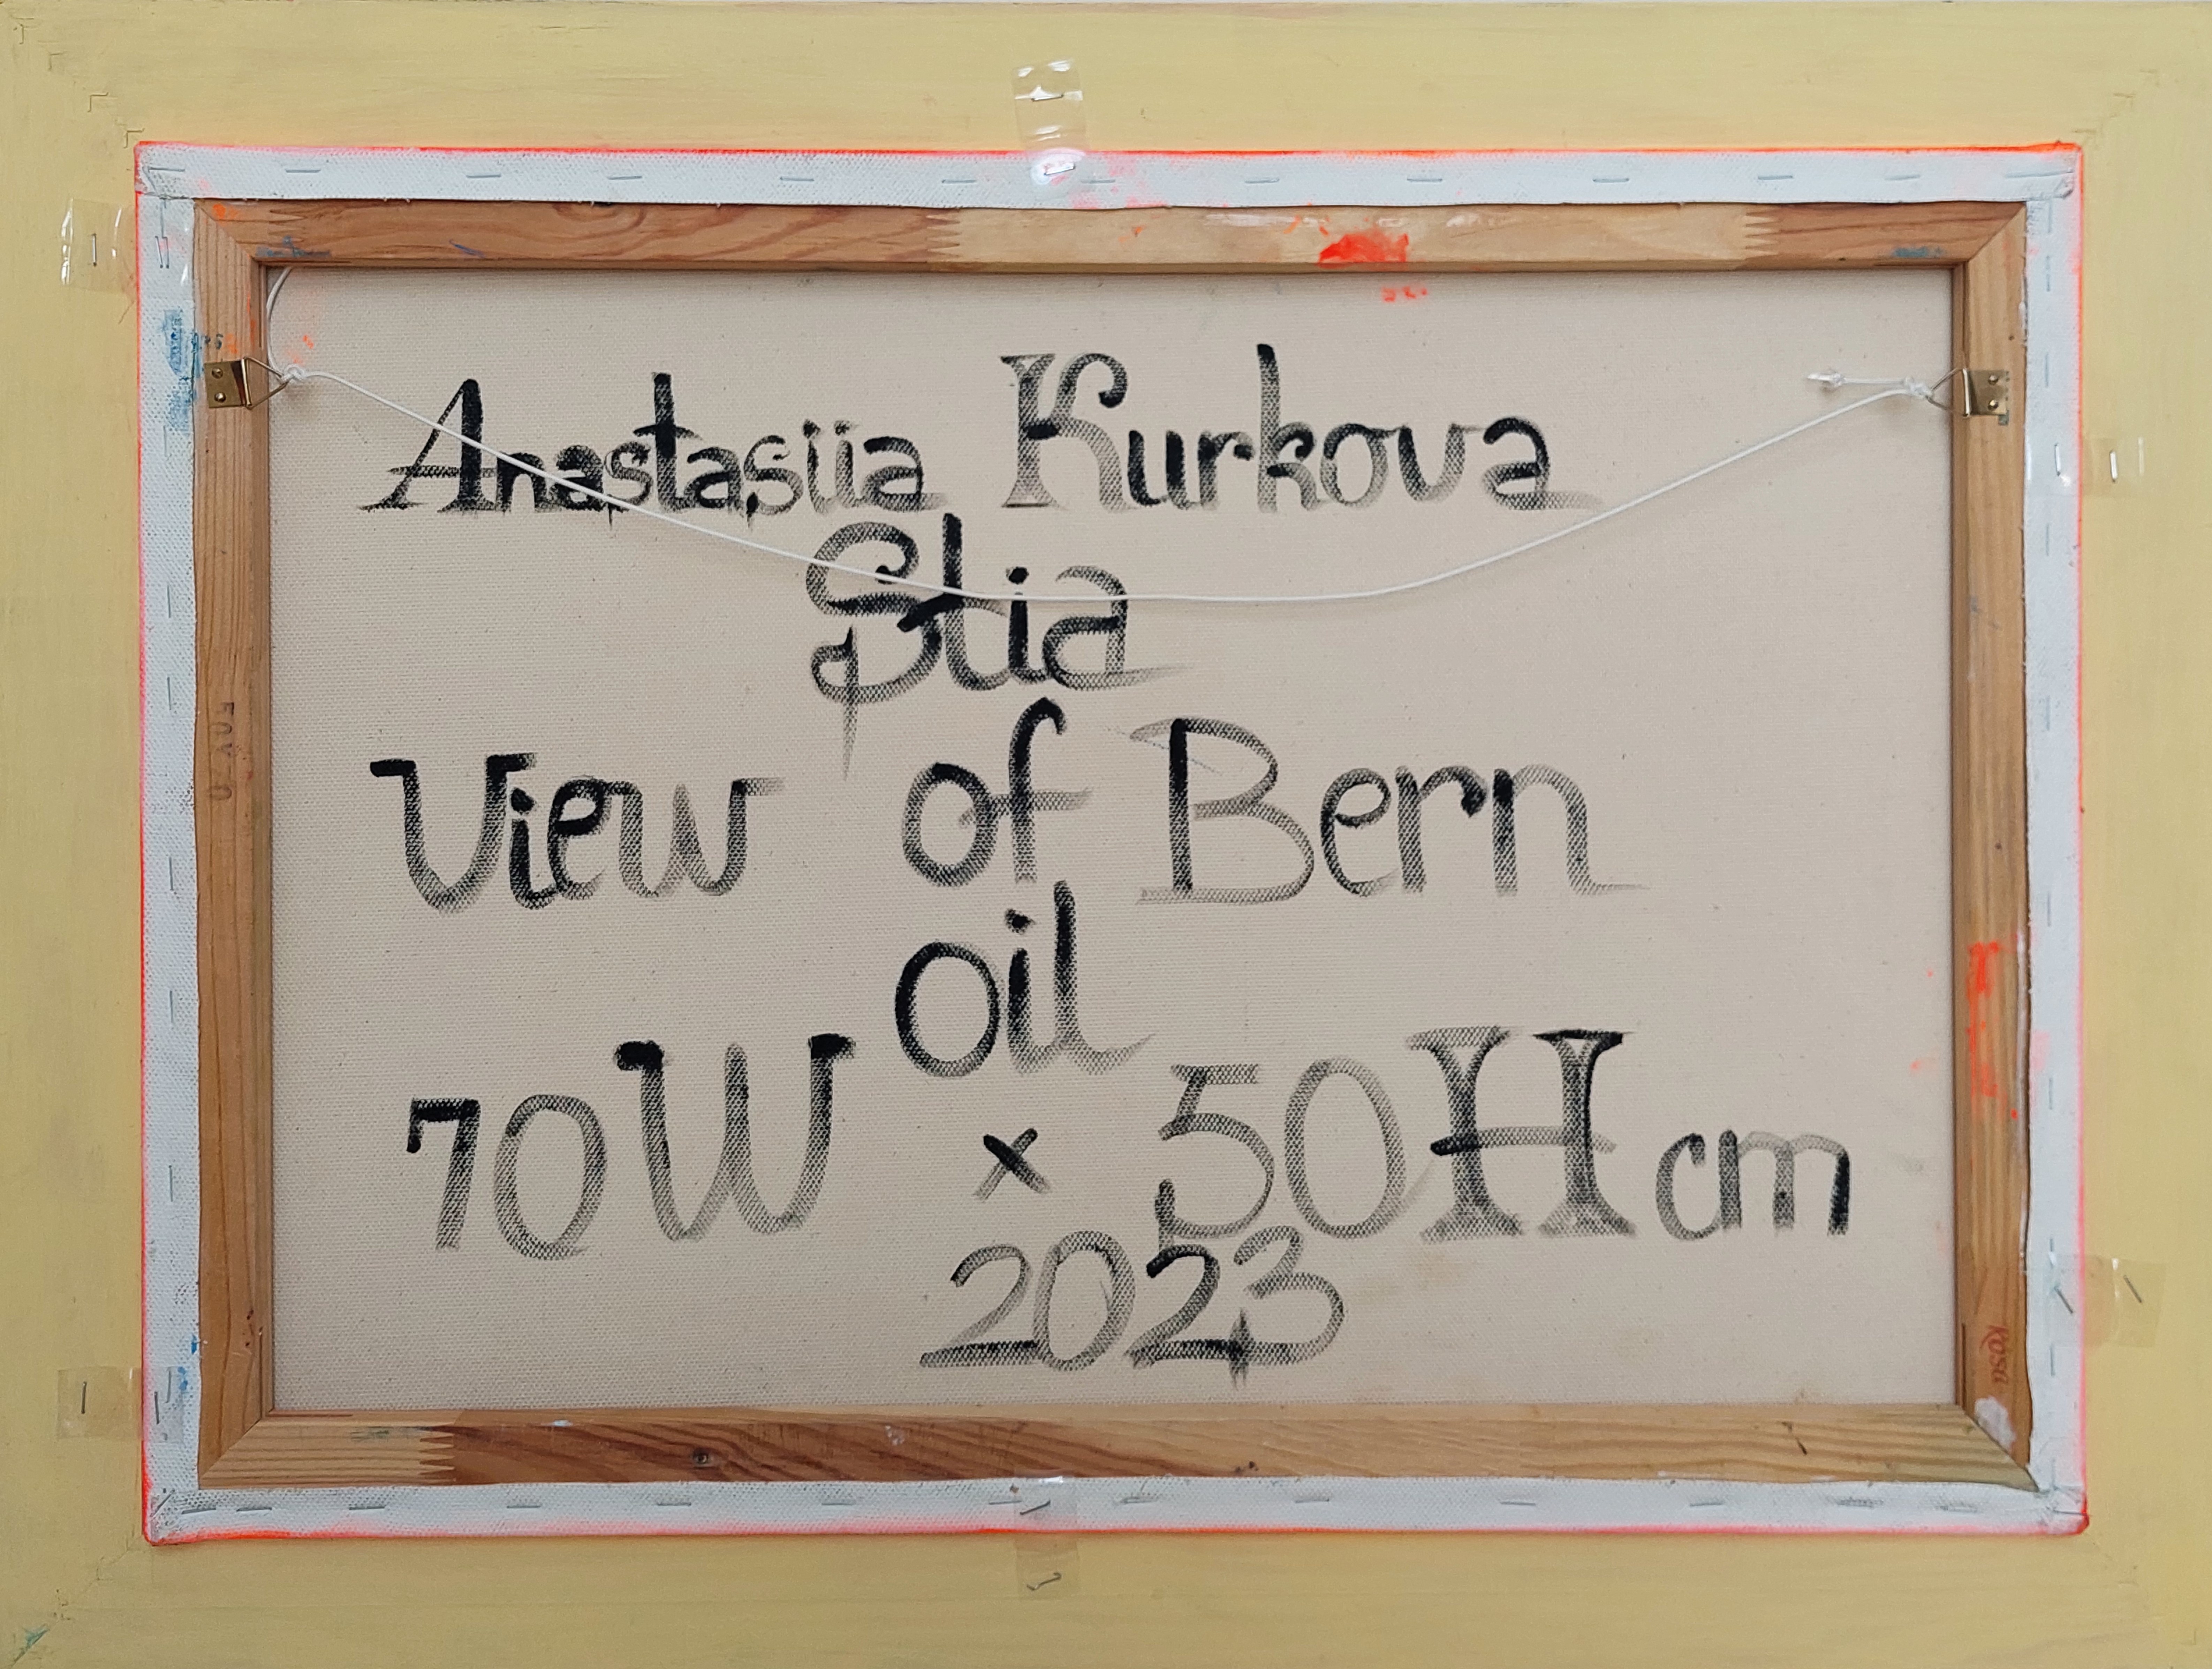 Anastasiia Kurkova
Stia
View of Bern
oil
70W × 50H cm
2023
50x70
Rosa